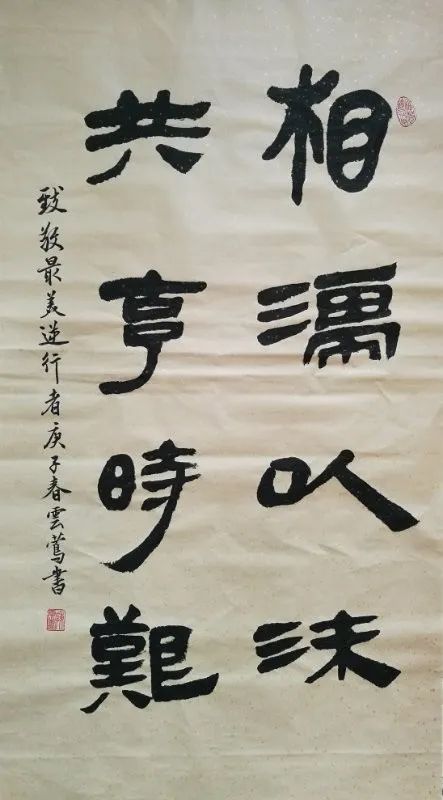 相濡以沫
共亨時艱
致敬最美逆行者庚子春雲蔦書